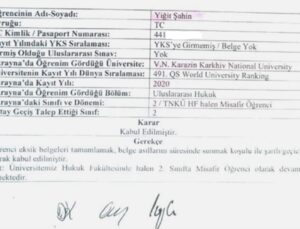 ğrencinin Adı-Soyadı: Yiğit Şahin
yruğu: TC
C Kimlik / Pasaport Numarası: 441
ayıt Yılındaki YKS Sıralaması: YKS'ye Girmemiş / Belge Yok
rmiş Olduğu Uluslararası Sınav: Yok
rayna'da Öğrenim Gördüğü Üniversite: V.N. Karazin Karkhiv National University
niversitenin Kayıt Yılı Dünya Sıralaması: 491. QS World University Ranking
rayna'da Kayıt Yılı: 2020
rayna'da Öğrenim Gördüğü Bölüm: Uluslararası Hukuk
rayna'daki Sınıfı ve Dönemi: 2 / TNKÜ HF halen Misafir Öğrenci
tay Geçiş Talep Ettiği Sınıf: 2
Karar
Kabul Edilmiştir.
Gerekçe
enci eksik belgeleri tamamlamak, belge asıllarını süresinde sunmak koşulu ile şartlı
rak kabul edilmiştir.
: Üniversitemiz Hukuk Fakültesinde halen 2. Sınıfta Misafir Öğrenci olarak devam
mektedir.